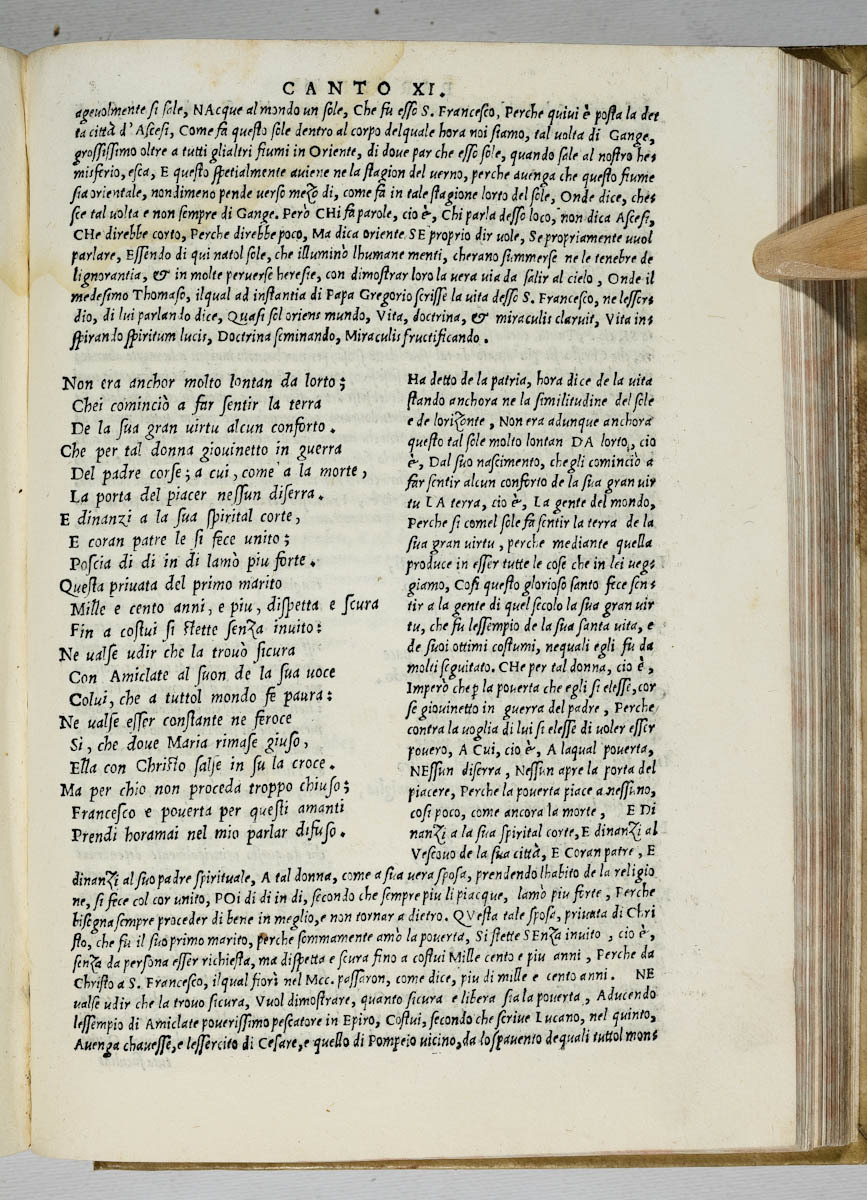 CANTO XI.
agevolmente si sole, NAcque al mondo un sole, Che fu esso S. Francesco, Perche quivi è posta la det
ta città d'Ascesi, Come fa questo sole dentro al corpo delquale hora noi siamo, tal volta di Gange,
grossissimo oltre a tutti glialtri fiumi in Oriente, di dove par che esso sole, quando sale al nostro he-
misferio, esca, E questo spetialmente aviene ne la stagion del verno, perche avenga che questo fiume
sia orientale, nondimeno pende verso mezo di, come fa in tale stagione lorto del sole, Onde dice, ches
sce tal volta e non sempre di Gange. Però CHi fa parole, cio è, Chi parla desso loco, non dica Ascesi,
CHe direbbe corto, Perche direbbe poco, Ma dica oriente SE proprio dir vole, Se propriamente vuol
parlare, Essendo di qui natol sole, che illuminò lhumane menti, cherano summerse ne le tenebre de
lignorantia, & in molte perverse heresie, con dimostrar loro la vera via da salir al cielo, Onde il
medesimo Thomaso, ilqual ad instantia di Papa Gregorio scrisse la vita desso S. Francesco, ne lessor-
dio, di lui parlando dice, Quasi sol oriens mundo, Vita, doctrina, & miraculis claruit, Vita in-
spirando spiritum lucis, Doctrina seminando, Miraculis fructificando.
Non era anchor molto lontan da lorto;
Chei cominciò a far sentir la terra
De la sua gran virtu alcun conforto.
Che per tal donna giovinetto in guerra
Del padre corse; a cui, come a la morte,
La porta del piacer nessun diserra.
E dinanzi a la sua spirital corte,
E coran patre le si fece unito;
Poscia di di in di lamò piu forte.
Questa privata del primo marito
Mille e cento anni, e piu, dispetta e scura
Fin a costui si stette senza invito:
Ne valse udir che la trovò sicura
Con Amiclate al suon de la sua voce
Colui, che a tuttol mondo fe paura:
Ne valse esser constante ne feroce
Si, che dove Maria rimase giuso,
Ella con Christo salse in su la croce.
Ma per chio non proceda troppo chiuso;
Francesco e poverta per questi amanti
Prendi horamai nel mio parlar difuso.
Ha detto de la patria, hora dice de la vita
stando anchora ne la similitudine del sole
e de lorizonte, Non era adunque anchora
questo tal sole molto lontan DA lorto, cio
è, Dal suo nascimento, che gli cominciò a
far sentir alcun conforto de la sua gran vir
tu LA terra, cio è, La gente del mondo,
Perche si comel sole fa sentir la terra de la
sua gran virtu, perche mediante quella
produce in esser tutte le cose che in lei veg-
giamo, Cosi questo glorioso santo fece sen-
tir a la gente di quel secolo la sua gran vir
tu, che fu lessempio de la sua santa vita, e
de suoi ottimi costumi, nequali egli fu da
molti seguitato. CHe per tal donna, cio è,
Imperò che p la poverta che egli si elesse, cor
se giovinetto in guerra del padre, Perche
contra la voglia di lui si elesse di voler esser
povero, A Cui, cio è, A laqual poverta,
NEssun diserra, Nessun apre la porta del
piacere, Perche la poverta piace a nessuno,
cosi poco, come ancora la morte, E DI
nanzi a la sua spirital corte, E dinanzi al
Vescovo de la sua città, E Coran patre, E
dinanzi al suo padre spirituale, A tal donna, come a sua vera sposa, prendendo lhabito de la religio
ne, si fece col cor unito, POi di di in di, secondo che sempre piu li piacque, lamò piu forte, Perche
bisogna sempre proceder di bene in meglio, e non tornar a dietro. QVesta tale sposa, privata di Chri
sto, che fu il suo primo marito, perche sommamente amò la poverta, Si stette SEnza invito, cio è,
senza da persona esser richiesta, ma dispetta e scura fino a costui Mille cento e piu anni, Perche da
Christo a S. Francesco, ilqual fiorì nel Mcc. passaron, come dice, piu di mille e cento anni. NE
valse udir che la trovo sicura, Vuol dimostrare, quanto sicura e libera sia la poverta, Aducendo
lessempio di Amiclate poverissimo pescatore in Epiro, Costui, secondo che scrive Lucano, nel quinto,
Avenga chavesse, e lessercito di Cesare, e quello di Pompeio vicino, da lo spavento dequali tuttol mon-